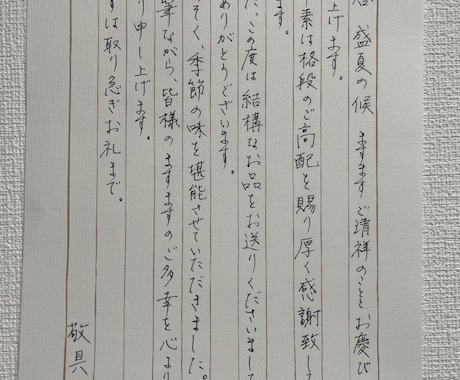 盛夏の候 ますますご清祥のこととお慶び
上げます。
素は格段のご高配を賜り厚く感謝致し
ます。
た、この度は結構なお品をお送りくださいまして
ありがとうございます。
そく、季節の味を堪能させていただきました。
筆ながら、皆様のますますのご多幸を心より
り申し上げます。
ずは取り急ぎお礼まで。
敬具